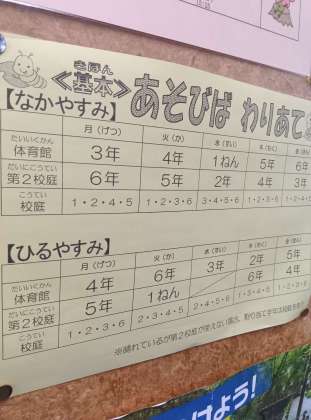 きほん
<基本> あそびば わりあて
【なかやすみ】
月(げつ) 火(か) 水(すい) 木(もく) 金(きん)
たいいくかん
体育館 3年 4年 1ねん 5年 6年
だいにこうてい
第2校庭 6年 5年 2年 4年 3年
こうてい
校庭 1・2・4・5 1・2・3・6 3・4・5・6 1・2・3・6 1・2・4・5
【ひるやすみ】
月(げつ) 火(か) 水(すい) 木(もく) 金(きん)
たいいくかん
体育館 4年 6年 3年 2年 5年
だいにこうてい
第2校庭 5年 1ねん 6年 4年
こうてい
校庭 1・2・3・6 2・3・4・5 2・4・5・6 1・3・4・5 1・2・3・6
※晴れているが第2校庭が使えない場合、割り当て学年は校庭を
よう!